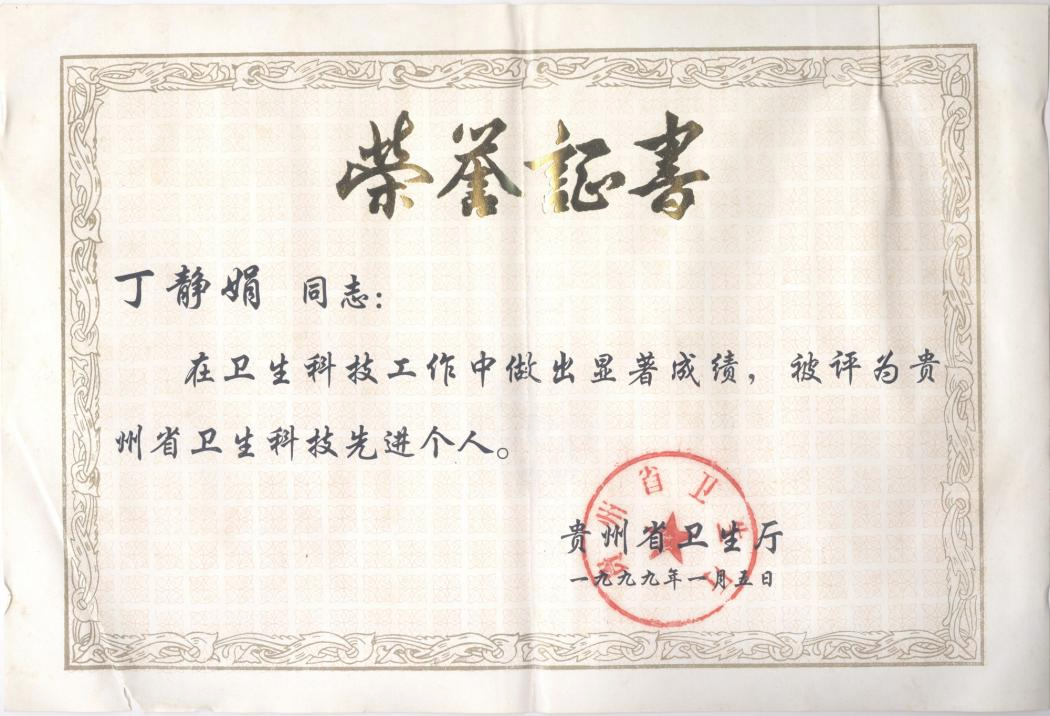 荣誉証書
丁静娟 同志：
在卫生科技工作中做出显著成绩，被评为贵
州省卫生科技先进个人。
贵州省卫生厅
一九九九年一月五日
贵州省卫生厅